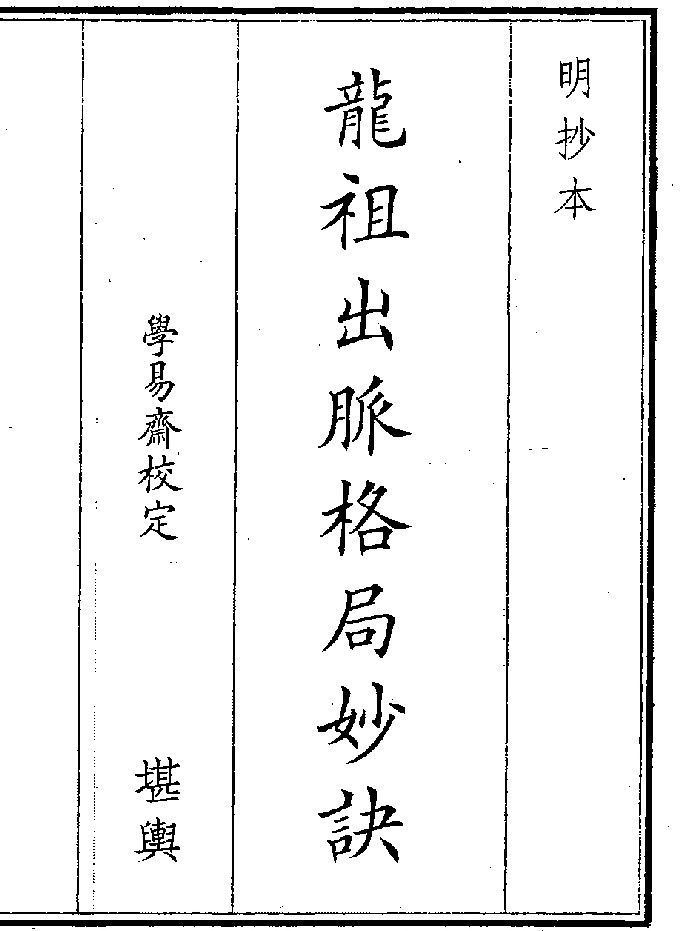 明抄本
龍祖出脈格局妙訣
學易齋校定
堪輿